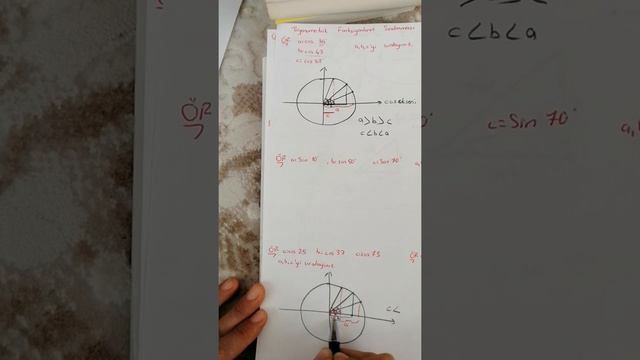 Trigonometrik Fonksiyonların Sıralanması
ÖR a=cos
b=cos 43
a,b,c'yi sıralayınız.
cos ekseni
a
a>b>c
c<b<a
ÖR a=sin 10° b=sin 50° c=sin 70°
ÖR a=cos 25 b=cos 37 c=cos 73
a,b,c'yi sıralayınız.
c<
a
c<b<a
ÖR
c=sin 70°